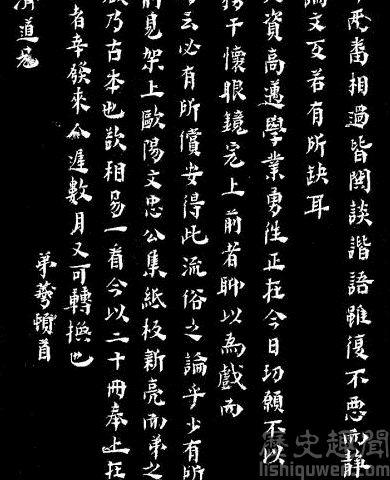 兩番相過皆閑談諧語雖復不惡而靜
論文反若有所缺耳
資高邁學業勇往正在今日切願不以
務干懷眼鏡完上前者聊以為戲而
云必有所償安得此流俗之論乎少有所
前見架上歐陽文忠公集紙板新亮而弟之
乃古本也欲相易一看今以二十冊奉上在
者幸發來令遲數月又可轉換也
弟頓首
道兄
歷史趣聞
lishiquwen.com